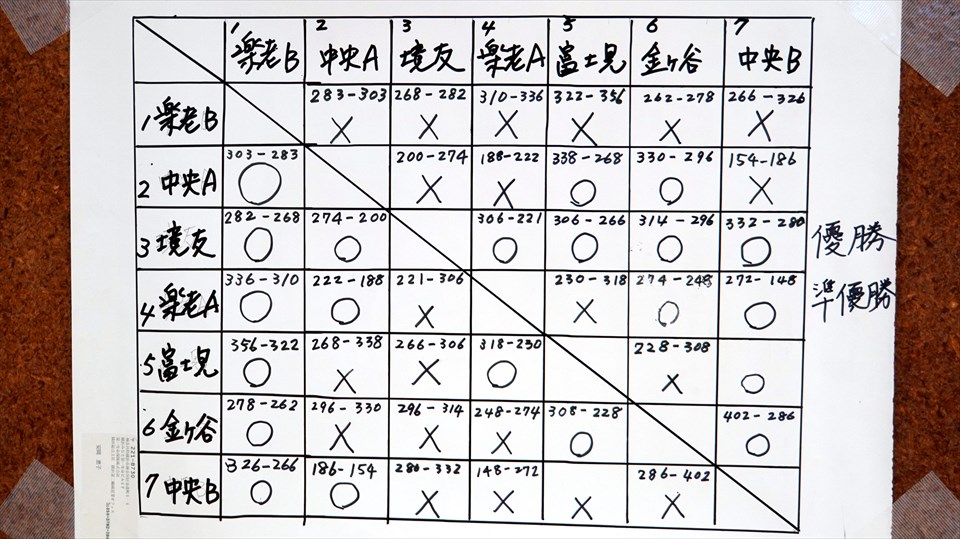 1 2 3 4 5 6 7
楽老B 中央A 境友 楽老A 富士見 金ヶ谷 中央B
283-303 268-282 310-336 322-356 262-278 266-326
1 楽老B × × × × × ×
303-283 200-274 188-222 338-268 330-296 154-186
2 中央A ○ × × ○ ○ ×
282-268 274-200 306-221 306-266 314-296 332-280
3 境友 ○ ○ ○ ○ ○ ○ 優勝
336-310 222-188 221-306 230-318 274-248 272-148
4 楽老A ○ ○ × × ○ ○ 準優勝
356-322 268-338 266-306 318-230 228-308
5 富士見 ○ × × ○ × ○
278-262 296-330 296-314 248-274 308-228 402-286
6 金ヶ谷 ○ × × × ○ ○
326-266 186-154 280-332 148-272 286-402
7 中央B ○ ○ × × × ×